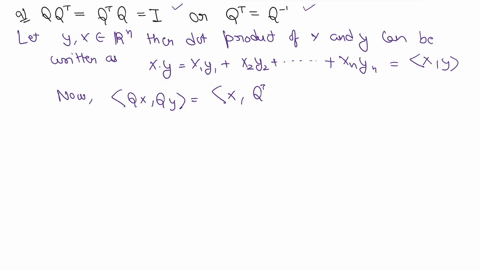 a) QQᵀ = QᵀQ = I ✓ or Qᵀ = Q⁻¹ ✓
Let y, x ∈ ℝⁿ then dot product of x and y can be
written as x·y = x₁y₁ + x₂y₂ + ······ + xₙyₙ = ⟨x, y⟩
Now, ⟨Qx, Qy⟩ = ⟨x, Qᵀ